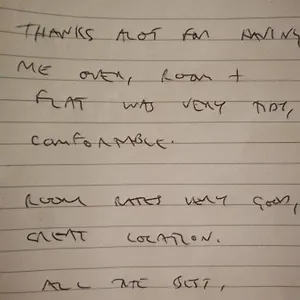 THANKS ALOT FOR HAVING
ME OVER, ROOM +
FLAT WAS VERY TIDY,
COMFORMABLE.
ROOM RATES VERY GOOD,
GREAT LOCATION.
ALL THE BEST,